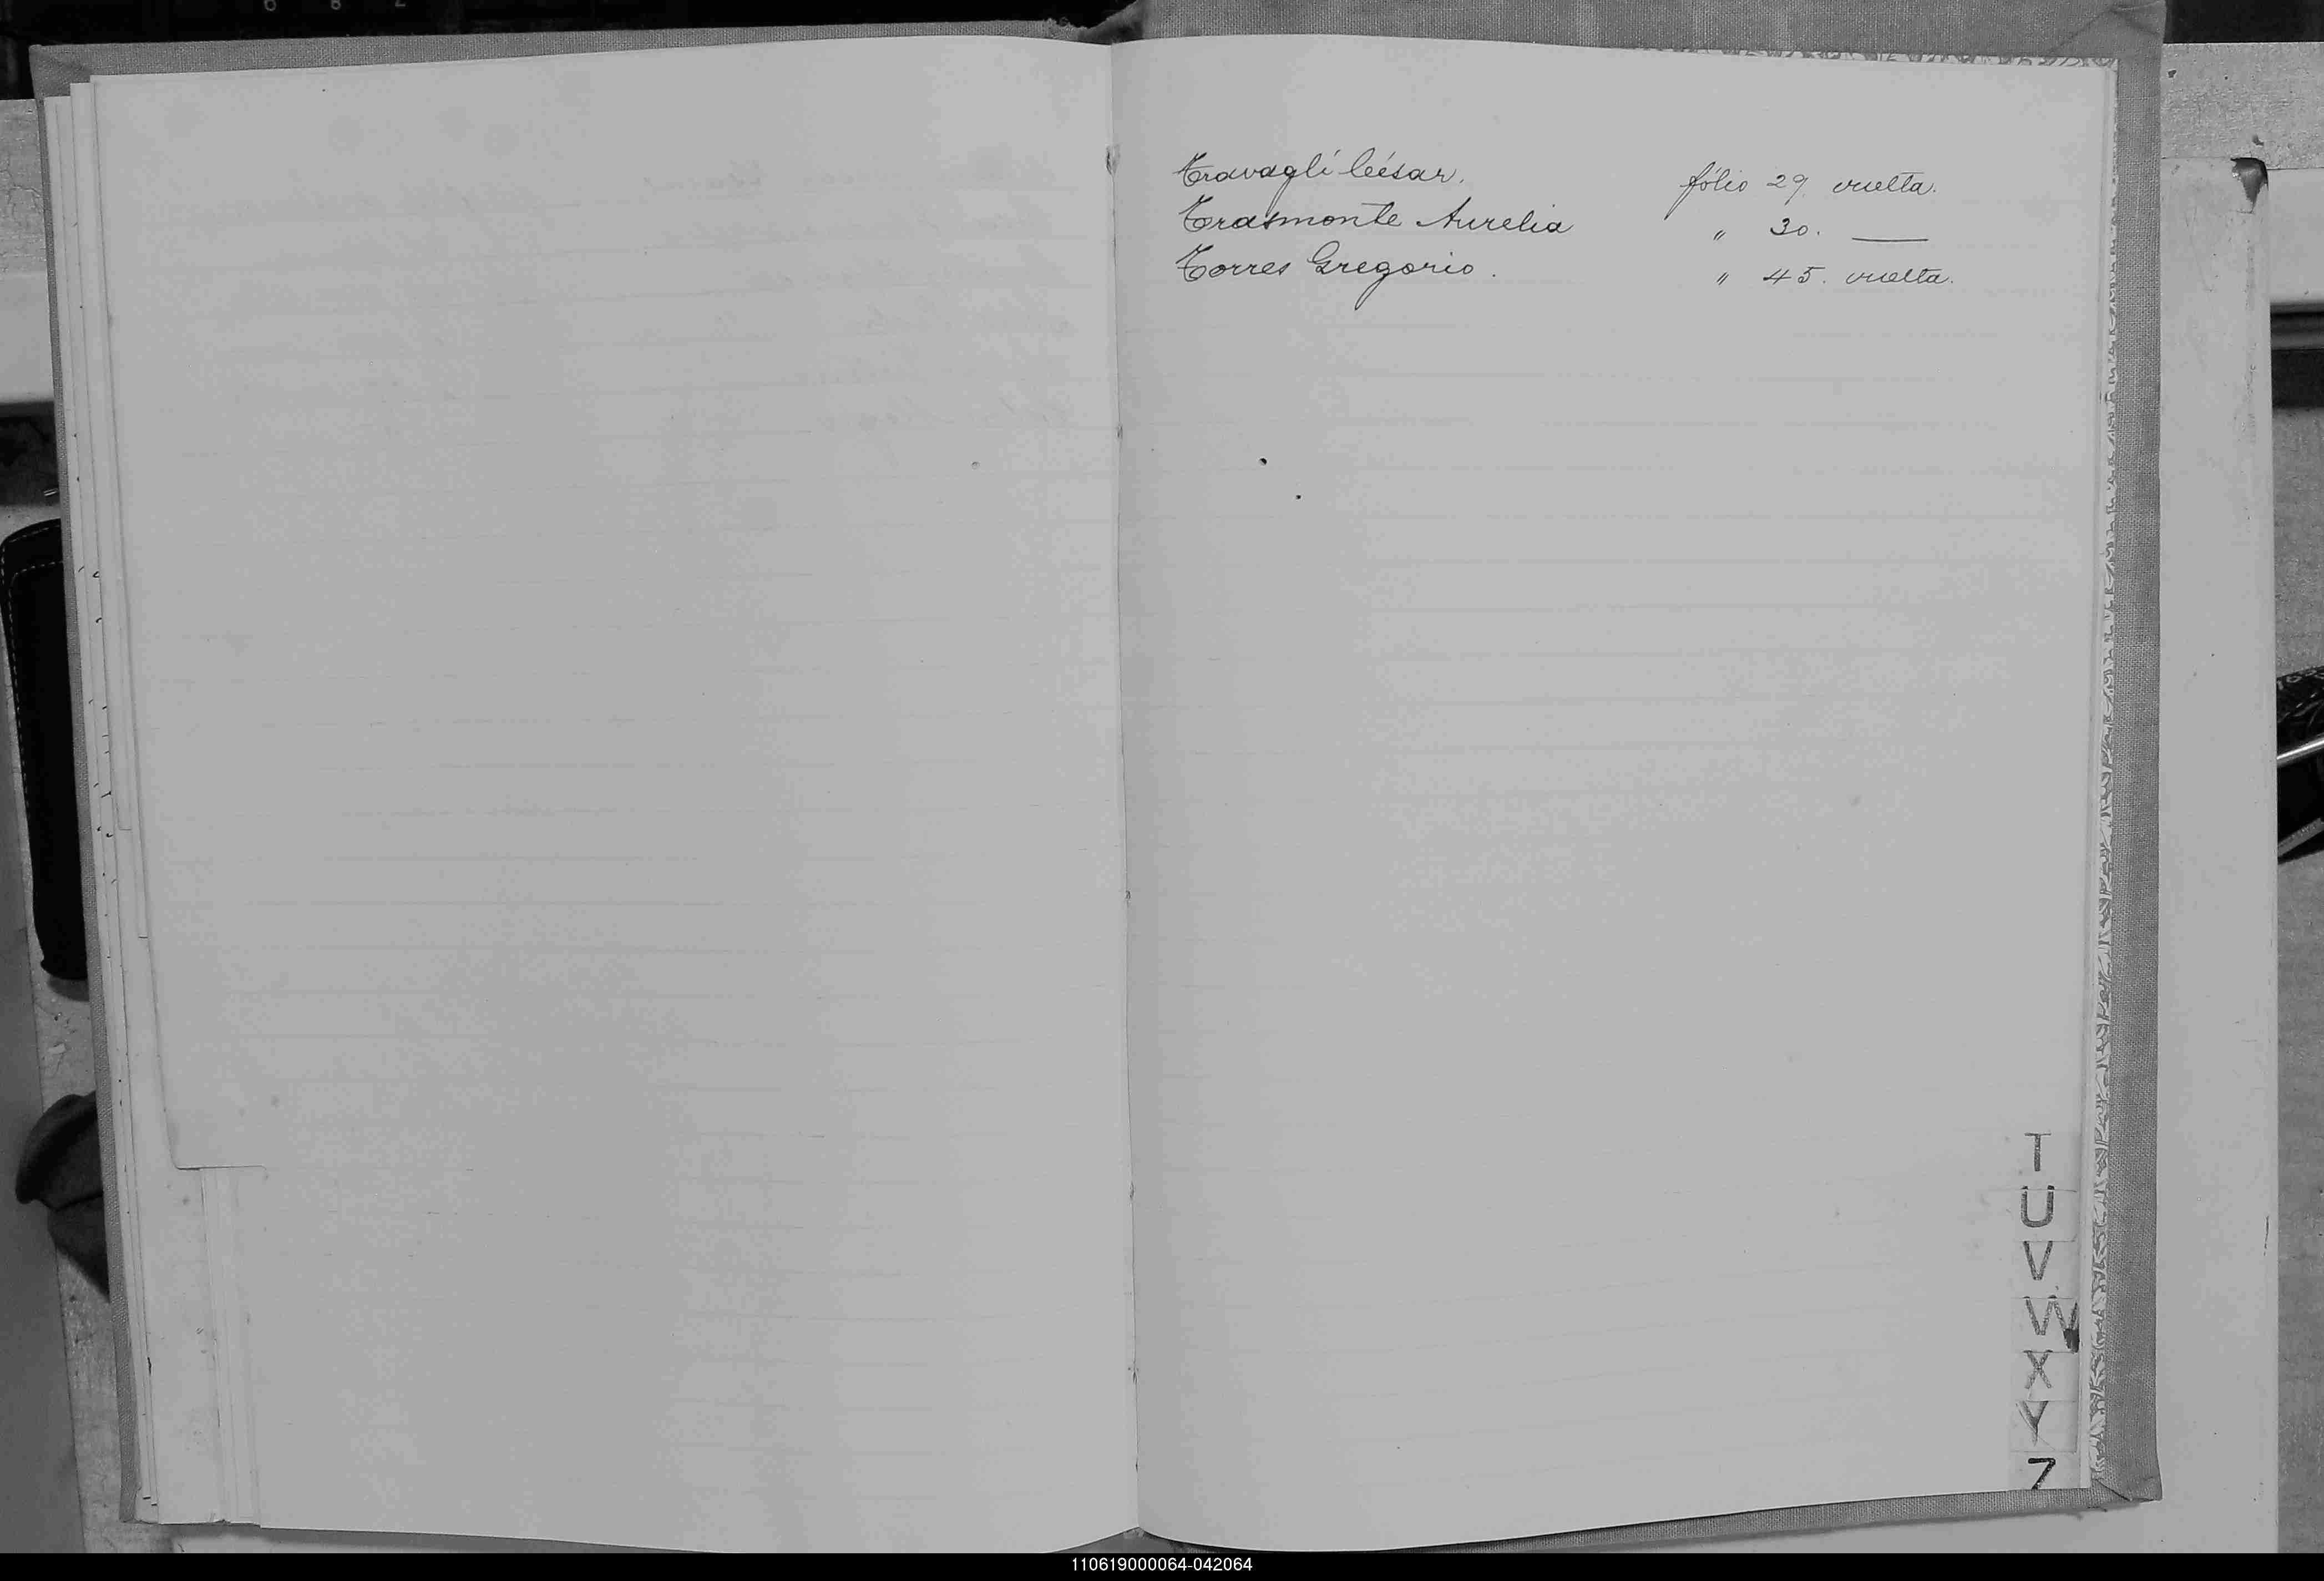 Travagli César. fólio 29. vuelta.
Trasmonte Aurelia " 30. ——
Torres Gregorio. " 45. vuelta.
T
U
V
W
X
Y
Z
110619000064-042064